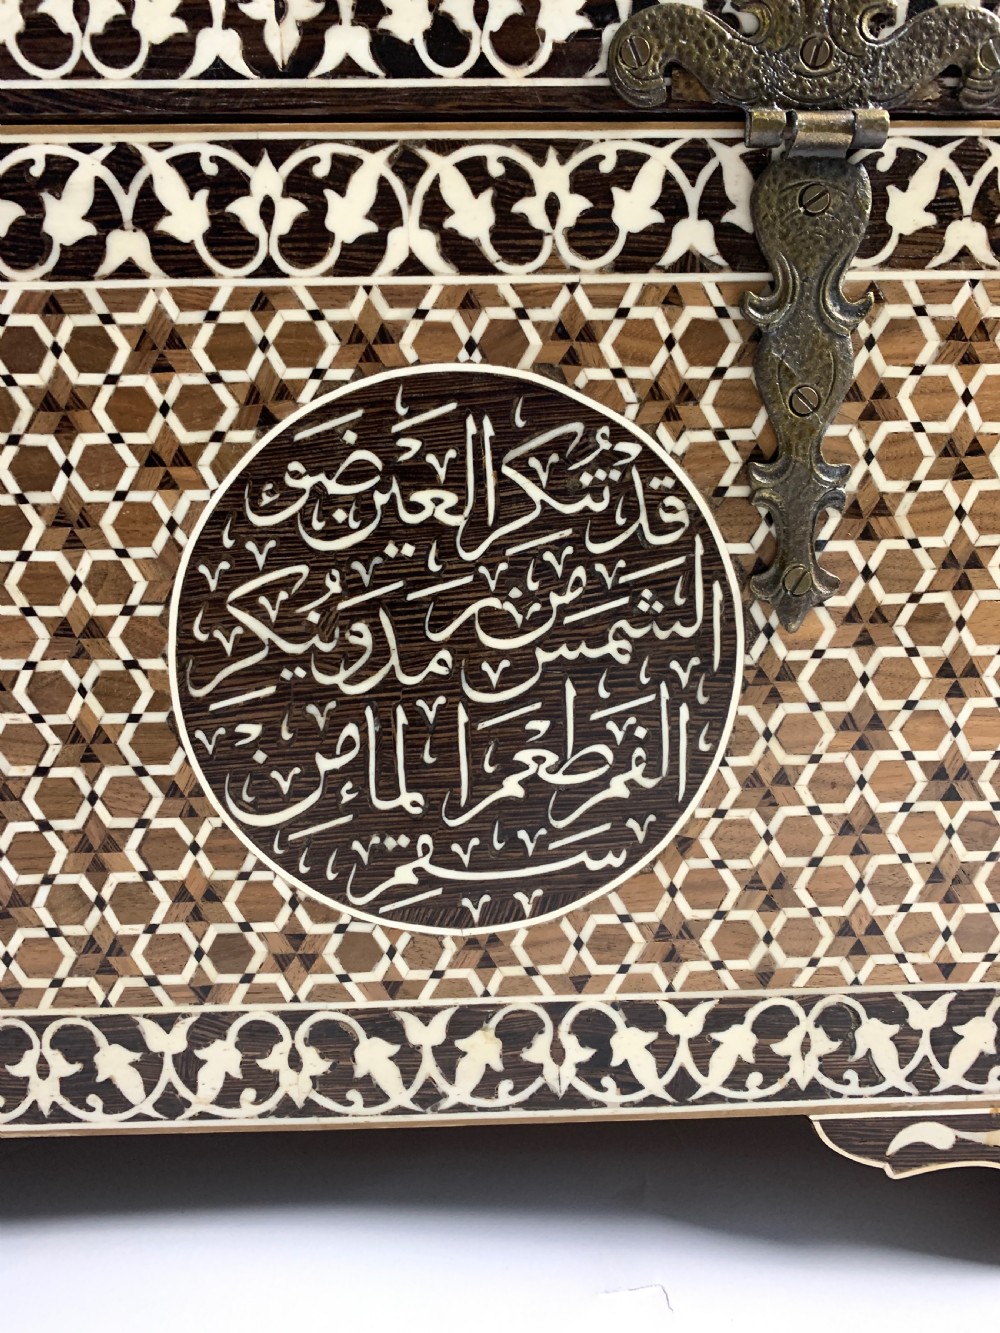 قد تنكر العين ضوئ
الشمس من رمد وينكر
الفم طعم الماء من
سقم